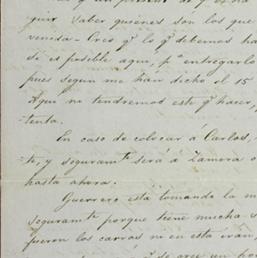 guir saber quiénes son los que
venida - Creo q.e lo q.e debemos ha
si es posible aqui, p.a entregarlo
pues segun me han dicho el 15
Aqui no tendremos este q.e hacer,
tenta.
En caso de colocar á Carlos,
te, y seguram.te será á Zamora o
hasta ahora.
Guerrero está tomando la m
seguram.te porque tiene mucha s
fueron los carros ni en esta iran,